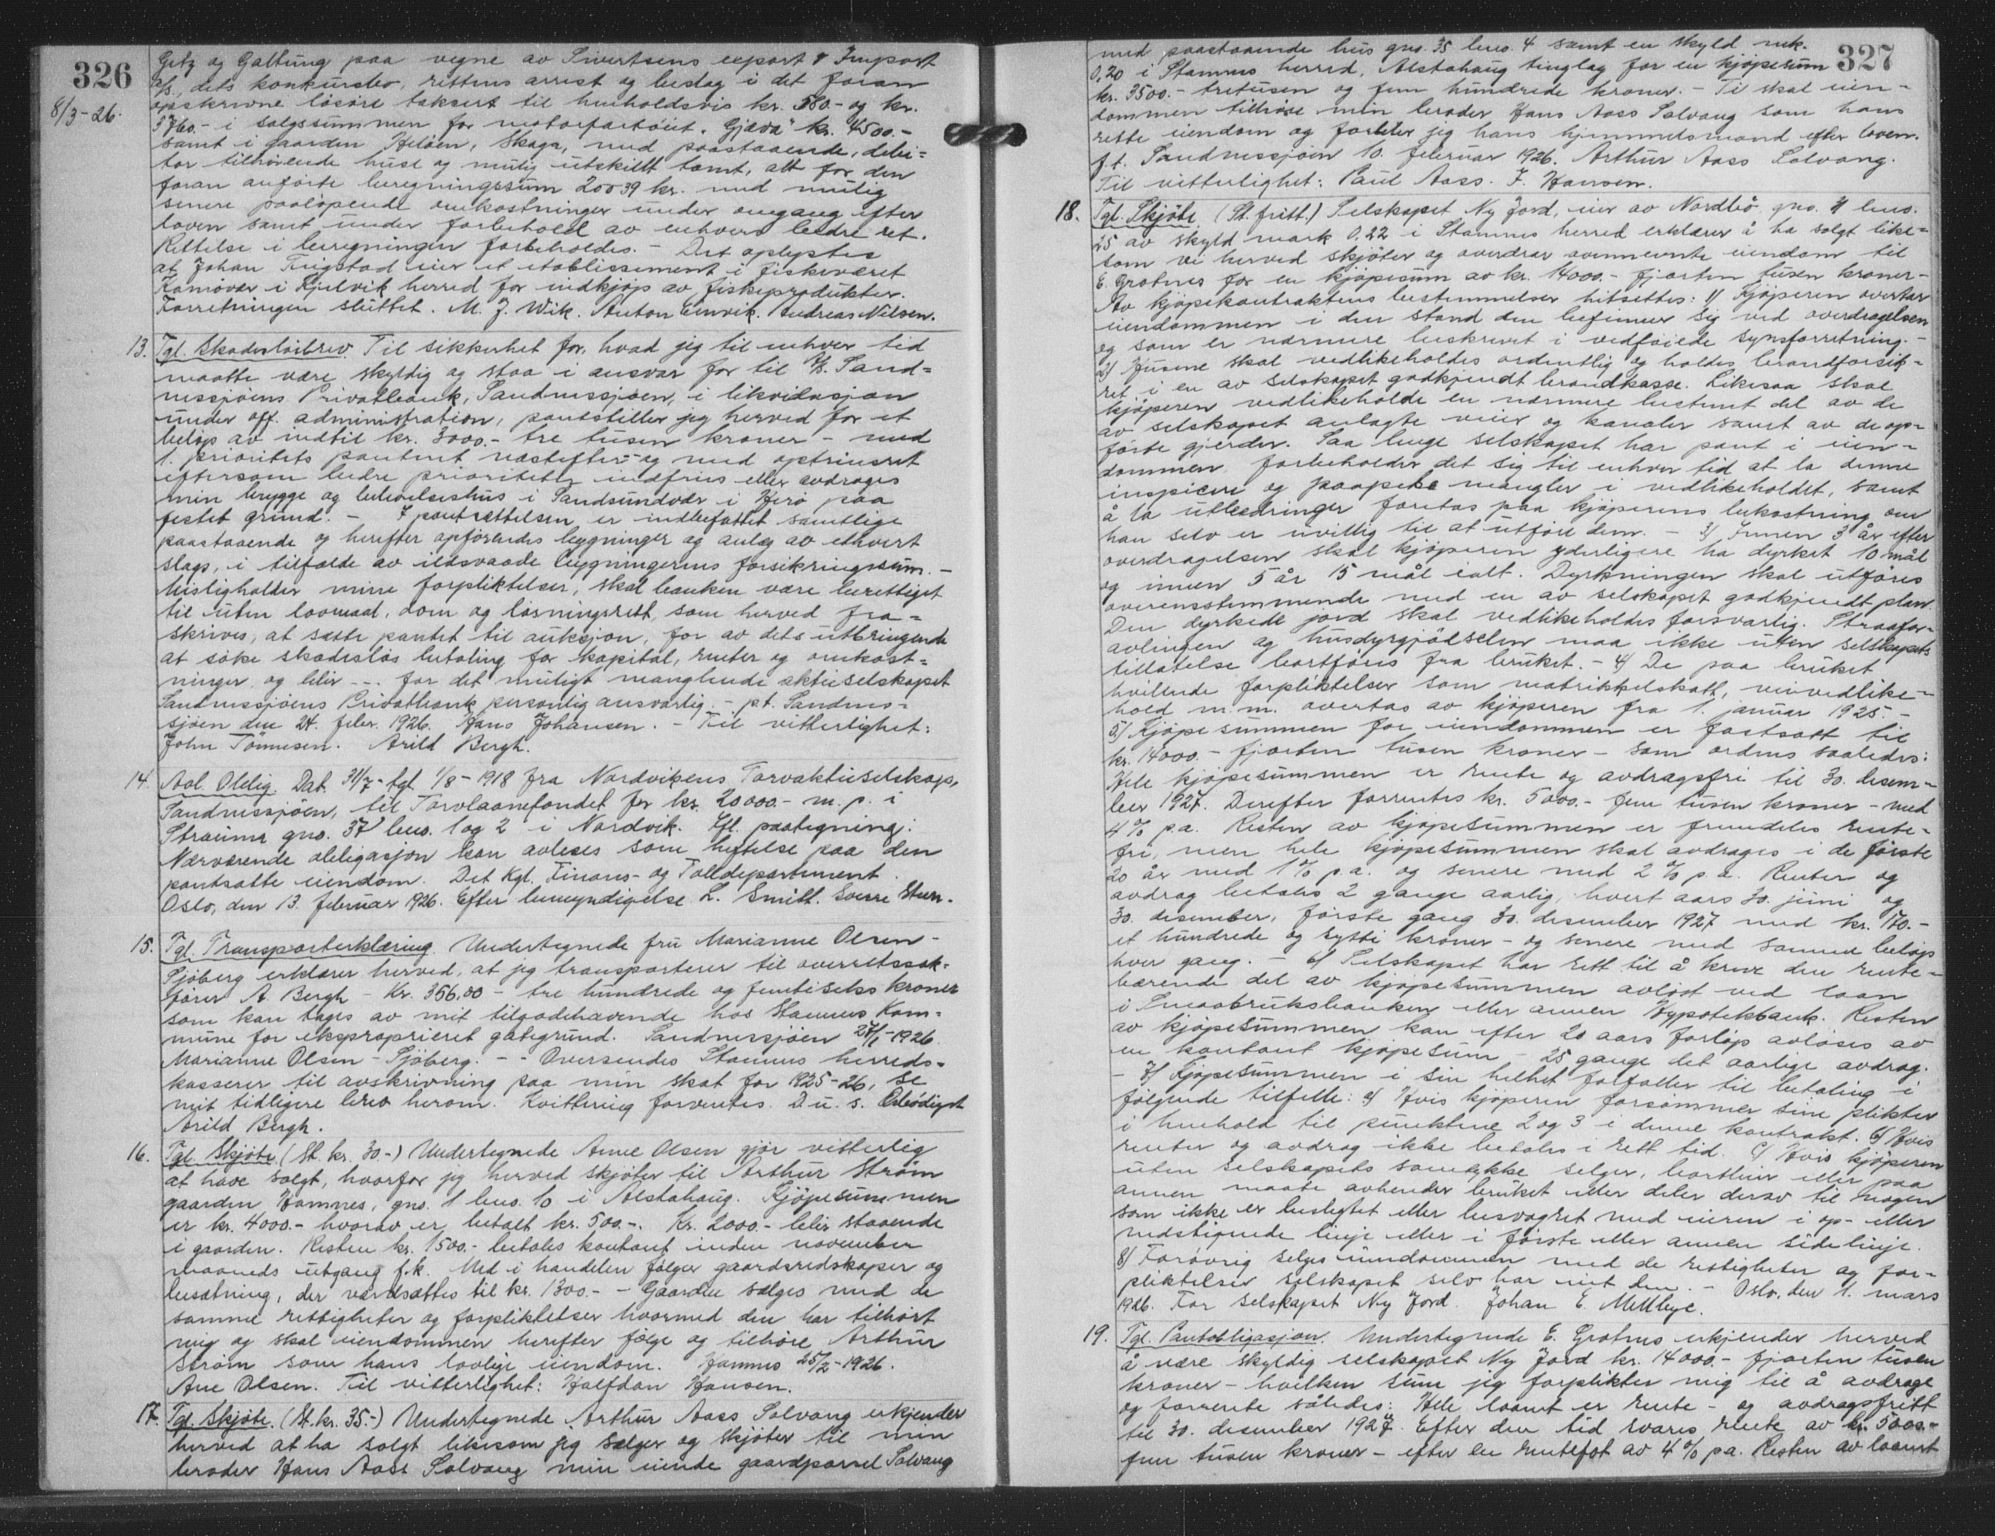 326
8/3-26.
Getz og Galtung paa vegne av Sivertsens export & Import
A/S, dets konkursbo, rettens arrest og beslag i det foran
opskrevne løsøre taksert til henholdsvis kr. 580.- og kr.
3760.- i salgssummen for motorfartöiet "Gjæva" kr. 4500.-
samt i gaarden Helöen, Skaga, med paastaaende, debi=
tor tilhörende huse og mulig utskilt tomt, alt for den
foran anförte beregningssum 20039 kr. med mulig
senere paalöpende omkostninger under omgang efter
loven samt under forbehold av enhvers bedre ret.
Rettelse i beregningen forbeholdes. - Det oplystes
at Johan Trigstad eier et etablissement i fiskeværet
Kamövær i Kjelvik herred for indkjöp av fiskeprodukter.
Forretningen sluttet. M. J. Wik. Anton Einvik. Andreas Nilsen.
13. Tgl. Skadeslösbrev Til sikkerhet for, hvad jeg til enhver tid
maatte være skyldig og staa i ansvar for til A/S. Sand=
nessjöens Privatbank, Sandnessjöen, i likvidasjon
under off. administration, pantstiller jeg herved for et
belöp av indtil kr. 3000.- tre tusen kroner - med
1. prioritets panteret næstefter - og med optrinsret
eftersom bedre prioriteter indfries eller avdrages
min brygge og beboelseshus i Sandsundvær i Herö paa
festet grund. - I pantsættelsen er indbefattet samtlige
paastaaende og herefter opförendes bygninger og anlæg av ethvert
slags, i tilfælde av ildsvaade bygningernes forsikringssum. -
Misligholder mine forpliktelser, skal banken være berettiget
til uten lovmaal, dom og lösningsrett, som herved fra=
skrives, at sætte pantet til auksjon, for av dets utbringende
at söke skadeslös betaling for kapital, renter og omkost=
ninger og blir --- for det muligt manglende aktieselskapet
Sandnessjöens Privatbank personlig ansvarlig. - p.t. Sandnes=
sjöen den 24. febr. 1926. Hans Johansen. - Til vitterlighet:
John Tönnesen. Arild Bergh.
14. Avl. Oblig. Dat. 31/7- tgl. 1/8-1918 fra Nordvikens Torvaktieselskap,
Sandnessjöen, til Torvlaanefondet for kr. 20000.- m. p. i
Strauma gno. 37 bno. 1 og 2 i Nordvik. Hfl. paategning:
Nærværende obligasjon kan avleses som heftelse paa den
pantsatte eiendom. Det Kgl. Finans- og Tolldepartement.
Oslo, den 13. februar 1926. Efter bemyndigelse L. Smitt. Sverre Steen.
15. Tgl. Transporterklæring. Undertegnede fru Marianne Olsen-
Sjöberg erklærer herved, at jeg transporterer til overretssak-
förer A. Bergh - Kr. 356.00 - tre hundrede og femtiseks kroner
som kan tages av mit tilgodehavende hos Stamnes Kom-
mune for ekspropriert gategrund. Sandnessjöen 27/1-1926.
Marianne Olsen - Sjöberg. - - Oversendes Stamnes herreds-
kasserer til avskrivning paa min skat for 1925-26, se
mit tidligere brev herom. Kvittering forventes. D u. s. Erbödigst
Arild Bergh.
16. Tgl. Skjöte (St. kr. 30.-) Undertegnede Anne Olsen gjör vitterlig
at have solgt, hvorfor jeg herved skjöter til Arthur Ström
gaarden Hamnes, gno. 1 bno. 10 i Alstahaug. Kjöpesummen
er kr. 4000.- hvorav er betalt kr. 500.-. Kr. 2000.- blir staaende
i gaarden. Resten kr. 1500.- betales kontant inden november
maaneds utgang f.k. Med i handelen fölger gaardsredskaper og
besætning, der værdsættes til kr. 1300.- - Gaarden sælges med de
samme rettigheter og forpliktelser hvormed den har tilhört
mig og skal eiendommen herefter fölge og tilhöre Arthur
Ström som hans lovlige eiendom. Hamnes 25/2-1926.
Ane Olsen. Til vitterlighet: Halfdan Hansen.
17. Tgl. Skjöte. (St. kr. 35.-) Undertegnede Arthur Aass Solvang erkjender
herved at ha solgt likesom jeg sælger og skjöter til min
broder Hans Aass Solvang min eiende gaardparsel Solvang
327
med paastaaende hus gno. 35 bno. 4 samt en skyld mk.
0,20 i Stamnes herred, Alstahaug tinglag for en kjöpesum
kr. 3500.- tretusen og fem hundrede kroner. - Ti skal eien-
dommen tilhöre min broder Hans Aass Solvang som hans
rette eiendom og forblir jeg hans hjemmelsmand efter loven.
f.t. Sandnessjöen 10. februar 1926. Arthur Aass Solvang.
Til vitterlighet: Paul Aass. J. Hansen.
18. Tgl. Skjöte (St. fritt.) Selskapet Ny Jord, eier av Nordbö gno. 4 bno.
25 av skyld mark 0,22 i Stamnes herred erklærer å ha solgt like-
som vi herved skjöter og overdrar ovennevnte eiendom til
E. Grotnes for en kjöpesum av kr. 14000.- fjorten tusen kroner-
Av kjöpekontraktens bestemmelser hitsettes: 1/ Kjöperen overtar
eiendommen i den stand den befinner sig ved overdragelsen
og som er nærmere beskrevet i vedföiede synsforretning. -
2/ Husene skal vedlikeholdes ordentlig og holdes brandforsik-
ret i en av selskapet godkjendt brandkasse. Likesaa skal
kjöperen vedlikeholde en nærmere bestemt del av de
av selskapet anlagte veier og kanaler samt av de op-
förte gjerder. Saa lenge selskapet har pant i eien-
dommen forbeholder det sig til enhver tid at la denne
inspicere og paapeke mangler i vedlikeholdet, samt
å la utbedringer foretas paa kjöperens bekostning om
han selv er uvillig til at utföre dem. - 3/ Innen 3 år efter
overdragelsen skal kjöperen yderligere ha dyrket 10 mål
og innen 5 år 15 mål ialt. Dyrkningen skal utföres
overensstemmende med en av selskapet godkjendt plan.
Den dyrkede jord skal vedlikeholdes forsvarlig. Straafor-
avlingen og husdyrgjödselen maa ikke uten selskapets
tillatelse bortföres fra bruket. - 4/ De paa bruket
hvilende forpliktelser som matrikkelskatt, veivedlike-
hold m.m. overtas av kjöperen fra 1. januar 1925. -
5/ Kjöpesummen for eiendommen er fastsatt til
kr. 14000.- fjorten tusen kroner - som ordnes saaledes:
Hele kjöpesummen er rente og avdragsfri til 30. desem-
ber 1927. Derefter forrentes kr. 5000.- fem tusen kroner - med
4 % p.a. Resten av kjöpesummen er fremdeles rente-
fri, men hele kjöpesummen skal avdrages i de förste
20 år med 1 % p.a. og senere med 2 % p.a. Renter og
avdrag betales 2 gange aarlig, hvert aars 30. juni og
30. desember, förste gang 30. desember 1927 med kr. 170.-
et hundrede og sytti kroner - og senere med samme belöp
hver gang. - 6/ Selskapet har rett til å kreve den rente-
bærende del av kjöpesummen avlöst ved laan
i Smaabruksbanken eller annen Hypotekbank. Resten
av kjöpesummen kan efter 20 aars forlöp avlöses av
en kontant kjöpesum - 25 gange det aarlige avdrag.
- 7/ Kjöpesummen i sin helhet forfaller til betaling i
fölgende tilfelle: a/ Hvis kjöperen forsömmer sine plikter
i henhold til punktene 2 og 3 i denne kontrakt. b/ Hvis
renter og avdrag ikke betales i rett tid. c/ Hvis kjöperen
uten selskapets samtykke selger, bortleier eller paa
annen maate avhender bruket eller deler derav til nogen
som ikke er beslegtet eller besvogret med eieren i op- eller
nedstigende linje eller i förste eller annen sidelinje.
8/ Forövrig selges eiendommen med de rettigheter og for-
pliktelser selskapet selv har eiet den. - Oslo, den 1. mars
1926. For selskapet Ny Jord. Johan E. Mellbye.
19. Tgl. Pantobligasjon. Undertegnede E. Grotnes erkjender herved
å være skyldig selskapet Ny Jord kr. 14000.- fjorten tusen
kroner - hvilken sum jeg forplikter mig til å avdrage
og forrente således: Hele laanet er rente - og avdragsfritt
til 30. desember 1927. Efter den tid svares rente av kr. 5000.-
fem tusen kroner - efter en rentefot av 4 % p.a. Resten av laanet